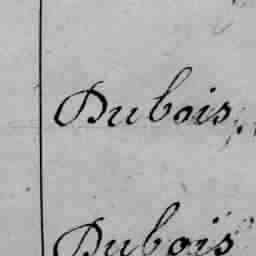 Dubois.
Duboïs